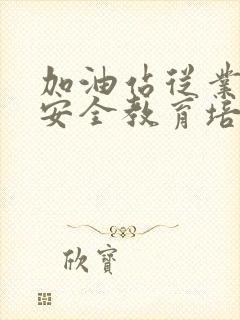 加油佔從業
安全教育培
欣寶